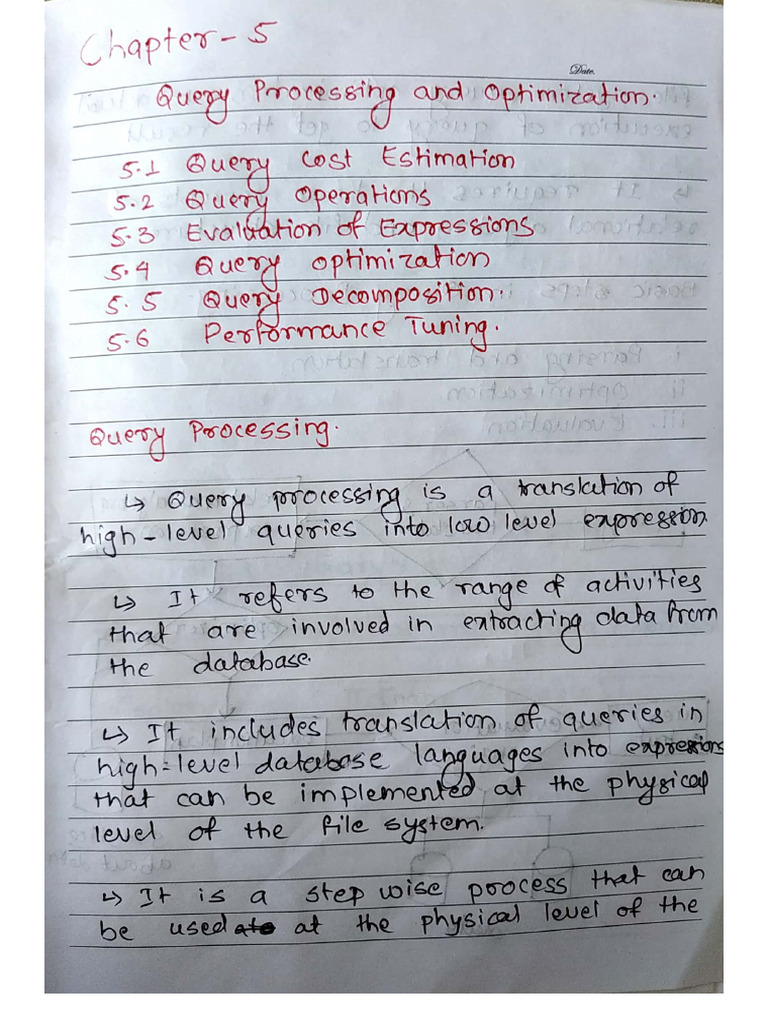 Chapter-5
Date.
Query Processing and Optimization.
5.1 Query Cost Estimation
5.2 Query Operations
5.3 Evaluation of Expressions
5.4 Query Optimization
5.5 Query Decomposition.
5.6 Performance Tuning.
Query Processing.
↳ Query processing is a translation of
high-level queries into low level expression.
↳ It refers to the range of activities
that are involved in extracting data from
the database.
↳ It includes translation of queries in
high-level database languages into expressions
that can be implemented at the physical
level of the file system.
↳ It is a step wise process that can
be used at the physical level of the